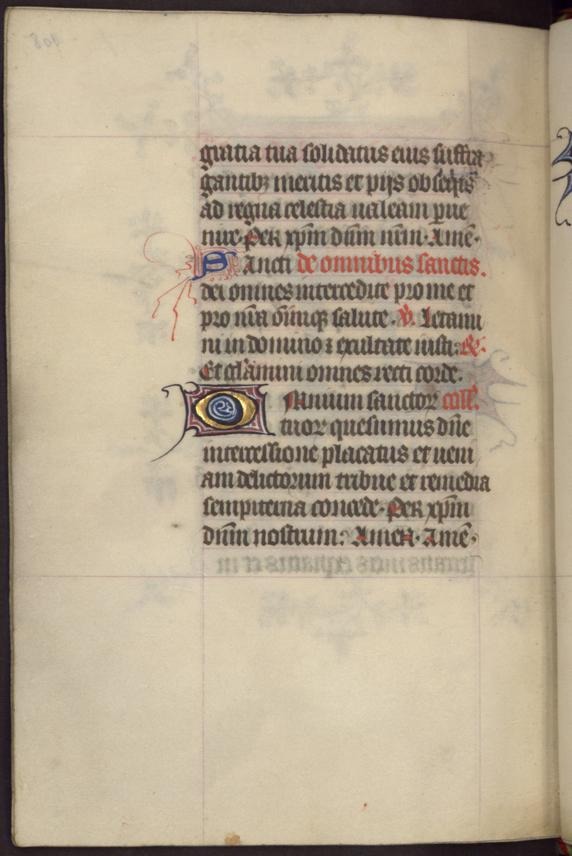 gratia tua solidatus eius suffra
gantibꝫ meritis et pijs obseqijs
ad regna celestia ualeam ꝑue
nire. Per xp̄m dn̄m nr̄m. Amē.
Sancti de omnibus sanctis.
dei omnes intercedite pro me et
pro nr̄a oīuīqꝫ salute. V̄. Letami
ni in domino ⁊ exultate iusti: R̄.
Et gl̄amini omnes recti corde.
Omnium sanctoꝝ coll'.
tuoꝝ quesumus dn̄e
intercessione placatus et ueni
am delictorum tribue et remedia
sempiterna concede. Per xp̄m
dn̄m nostrum: Amen. Amē.